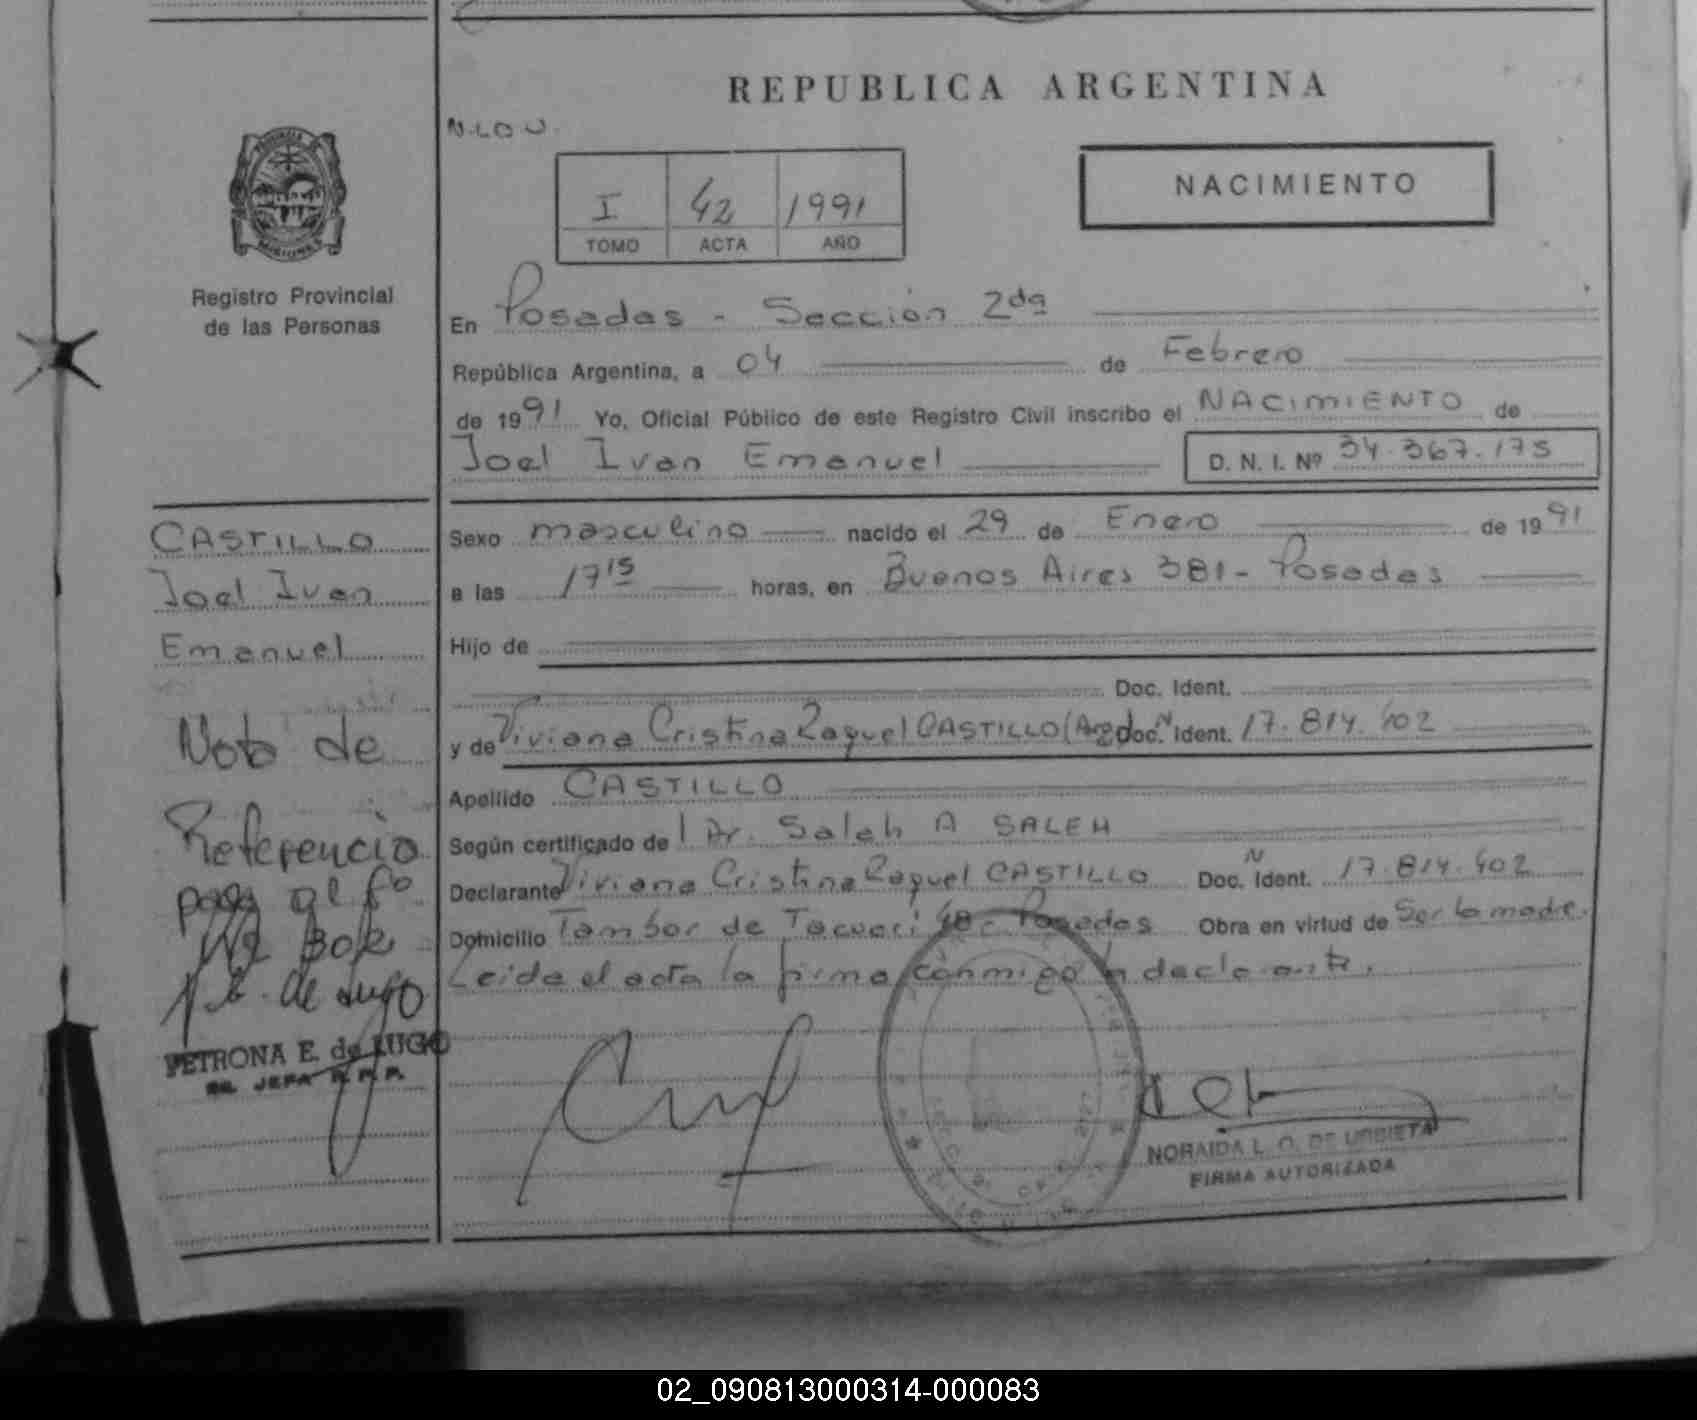 REPUBLICA ARGENTINA
N.LO.U.
NACIMIENTO
I 42 1991
TOMO ACTA AÑO
PROVINCIA DE
MISIONES
Registro Provincial
de las Personas
En Posadas - Sección 2da
República Argentina, a 04 de Febrero
de 1991 Yo, Oficial Público de este Registro Civil inscribo el NACIMIENTO de
Joel Ivan Emanuel D. N. I. Nº 34.367.175
CASTILLO
Joel Ivan
Emanuel
Nota de
Referencia
pasa al fº
Nº
P. E. de Lugo
PETRONA E. de LUGO
JEFA R. P. P.
Sexo masculino nacido el 29 de Enero de 1991
a las 17 15 horas, en Buenos Aires 381 - Posadas
Hijo de
Doc. Ident.
y de Viviana Cristina Raquel CASTILLO (Arg) Doc. N Ident. 17.814.402
Apellido CASTILLO
Según certificado de l Dr. Saleh A SALEH
Declarante Viviana Cristina Raquel CASTILLO Doc. N Ident. 17.814.402
Domicilio Tambor de Tacuari Posadas Obra en virtud de Ser la madre.
Leida el acta la firma conmigo la declarante.
NORAIDA L. O. DE URBIETA
FIRMA AUTORIZADA
02_090813000314-000083